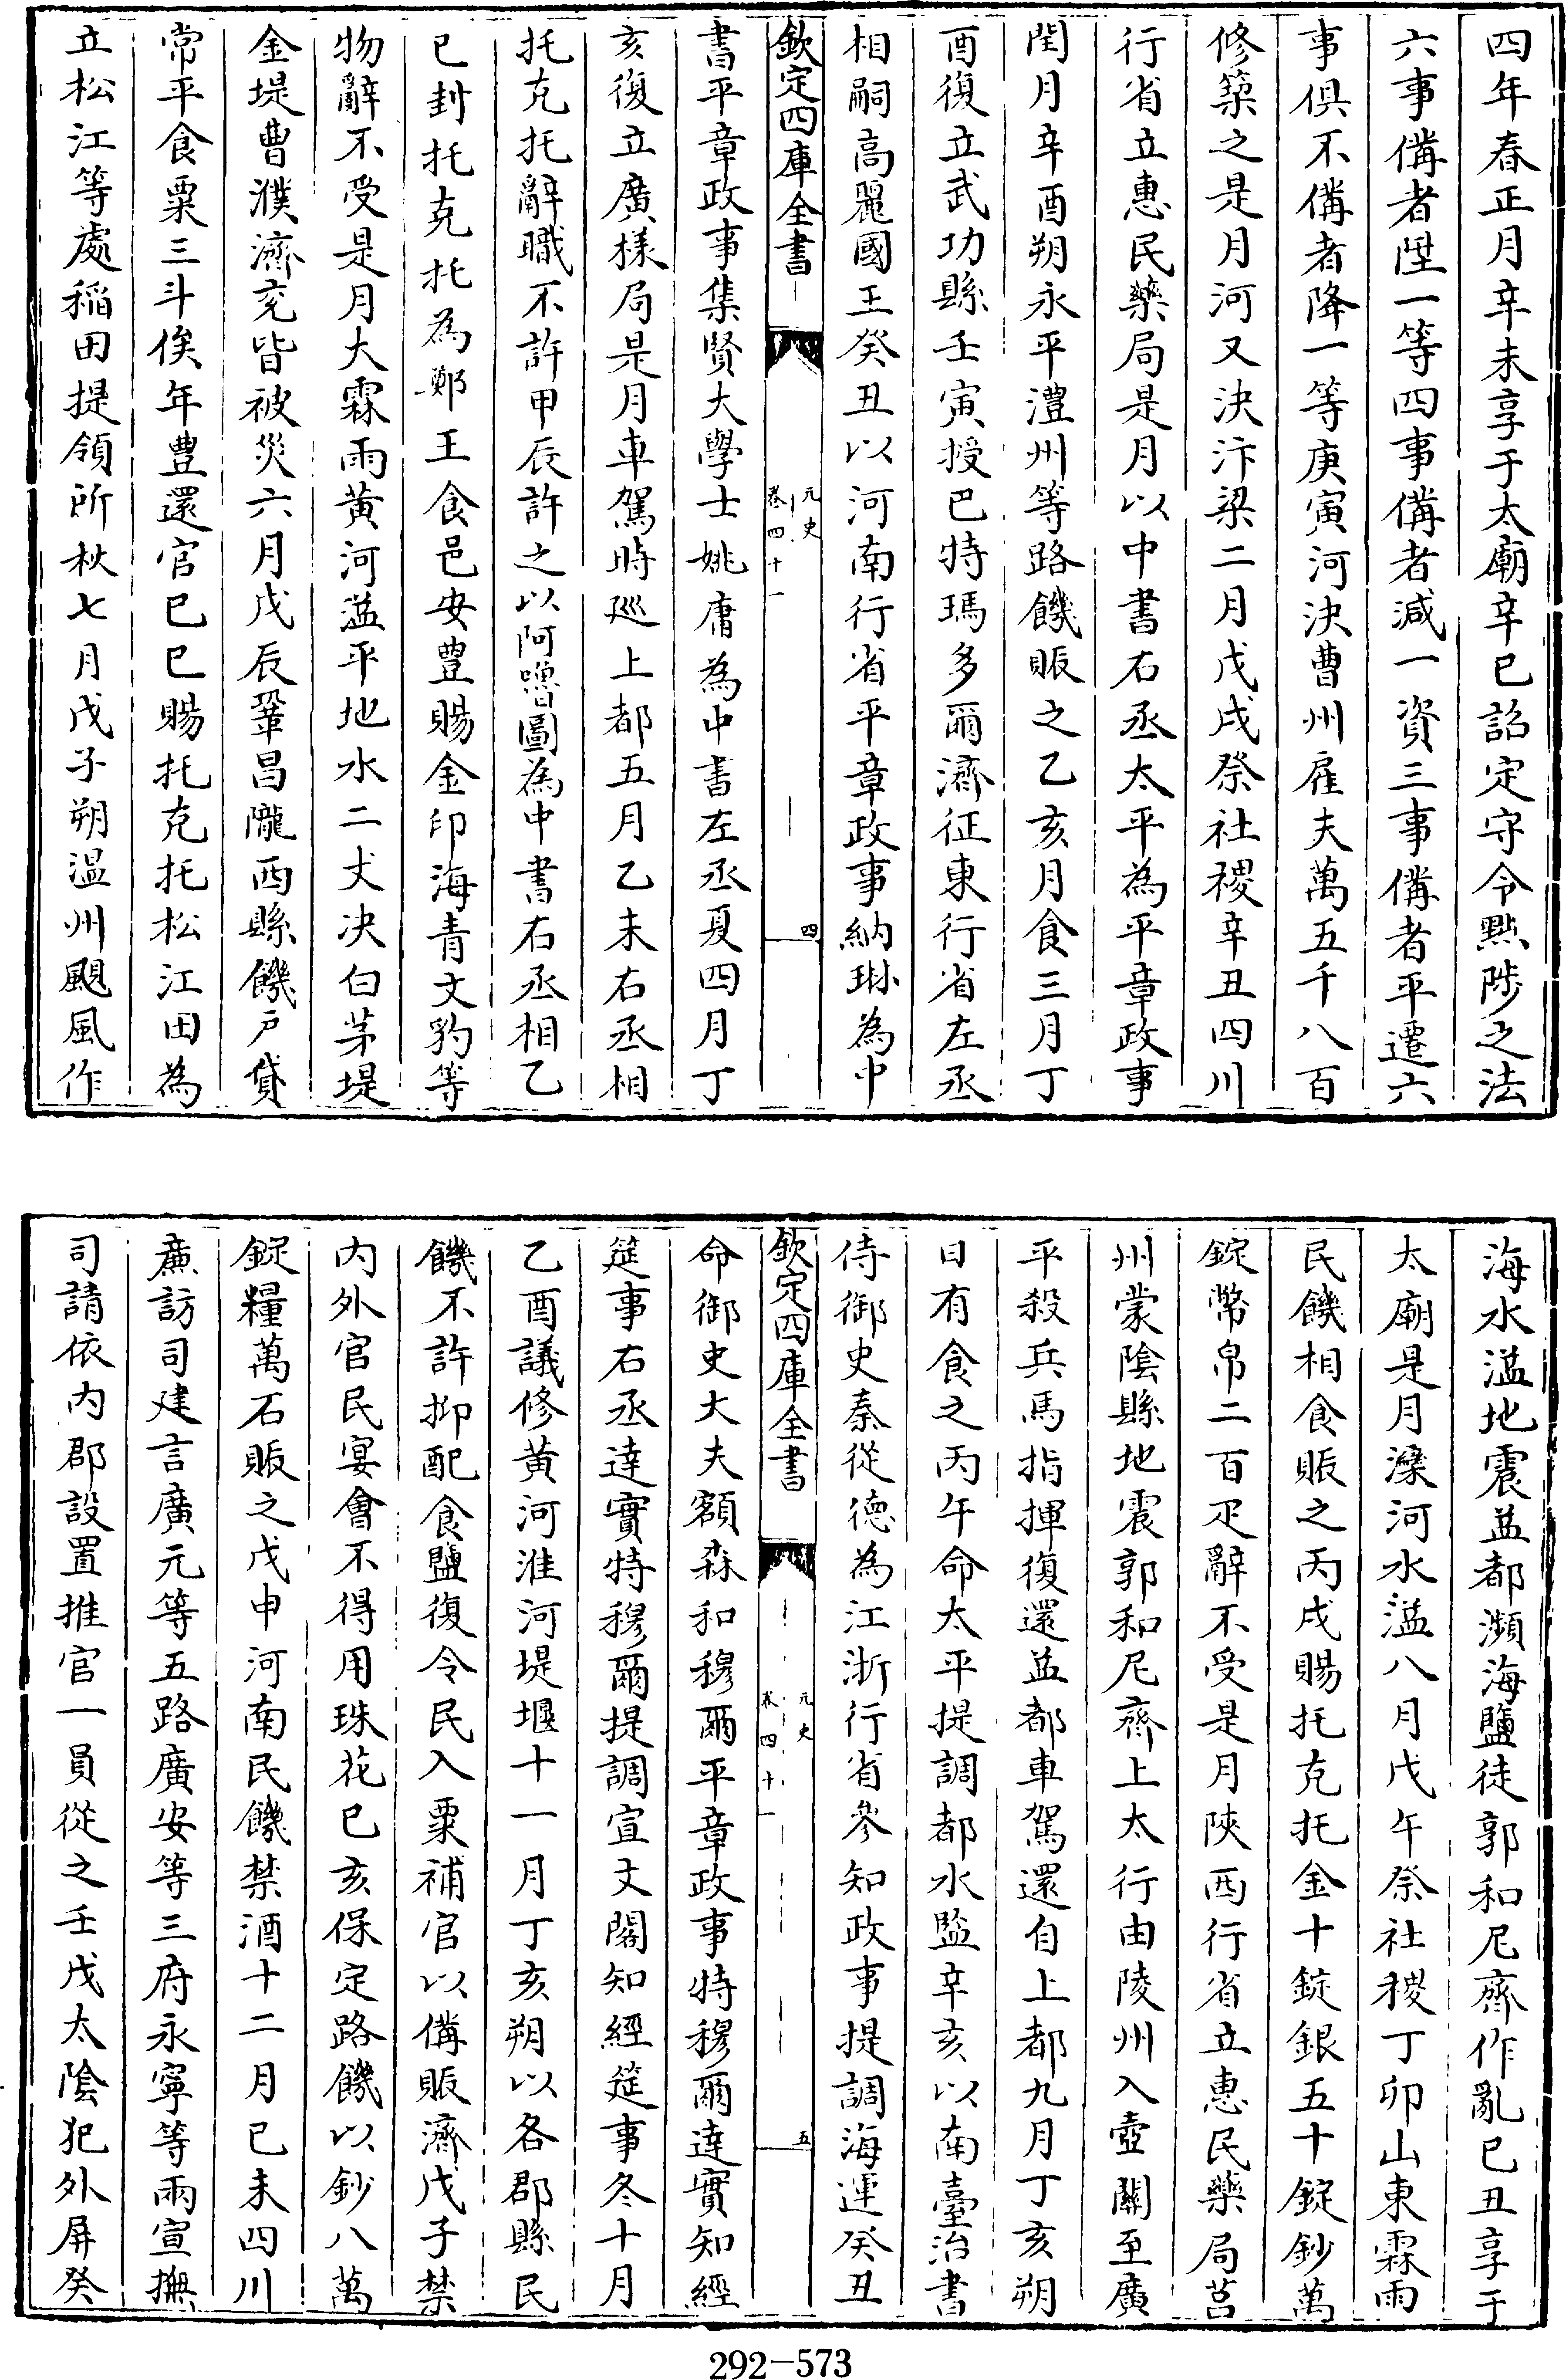 四年春正月辛未享于太廟辛巳詔定守令黜陟之法
六事備者陞一等四事備者減一資三事備者平遷六
事俱不備者降一等庚寅河決曹州雇夫萬五千八百
修築之是月河又決汴梁二月戊戌祭社稷辛丑四川
行省立惠民藥局是月以中書右丞太平為平章政事
閏月辛酉朔永平澧州等路饑賑之乙亥月食三月丁
酉復立武功縣壬寅授巴特瑪多爾濟征東行省左丞
相嗣高麗國王癸丑以河南行省平章政事納琳為中
欽定四庫全書
元史
卷四十一
四
書平章政事集賢大學士姚庸為中書左丞夏四月丁
亥復立廣樣局是月車駕時巡上都五月乙未右丞相
托克托辭職不許甲辰許之以阿嚕圖為中書右丞相乙
巳封托克托為鄭王食邑安豐賜金印海青文豹等
物辭不受是月大霖雨黃河溢平地水二丈決白茅堤
金堤曹濮濟兖皆被災六月戊辰鞏昌隴西縣饑戶貸
常平食粟三斗俟年豐還官己巳賜托克托松江田為
立松江等處稲田提領所秋七月戊子朔温州颶風作
海水溢地震益都瀕海鹽徒郭和尼齊作亂己丑享于
太廟是月灤河水溢八月戊午祭社稷丁卯山東霖雨
民饑相食賑之丙戌賜托克托金十錠銀五十錠鈔萬
錠幣帛二百疋辭不受是月陜西行省立惠民藥局莒
州蒙陰縣地震郭和尼齊上太行由陵州入壺關至廣
平殺兵馬指揮復還益都車駕還自上都九月丁亥朔
日有食之丙午命太平提調都水監辛亥以南臺治書
侍御史秦從德為江浙行省參知政事提調海運癸丑
欽定四庫全書
元史
卷四十一
五
命御史大夫額森和穆爾平章政事特穆爾達實知經
筵事右丞達實特穆爾提調宣文閣知經筵事冬十月
乙酉議修黃河淮河堤堰十一月丁亥朔以各郡縣民
饑不許抑配食鹽復令民入粟補官以備賑濟戊子禁
内外官民宴會不得用珠花己亥保定路饑以鈔八萬
錠糧萬石賑之戊申河南民饑禁酒十二月己未四川
廉訪司建言廣元等五路廣安等三府永寧等兩宣撫
司請依内郡設置推官一員從之壬戌太陰犯外屏癸
292-573